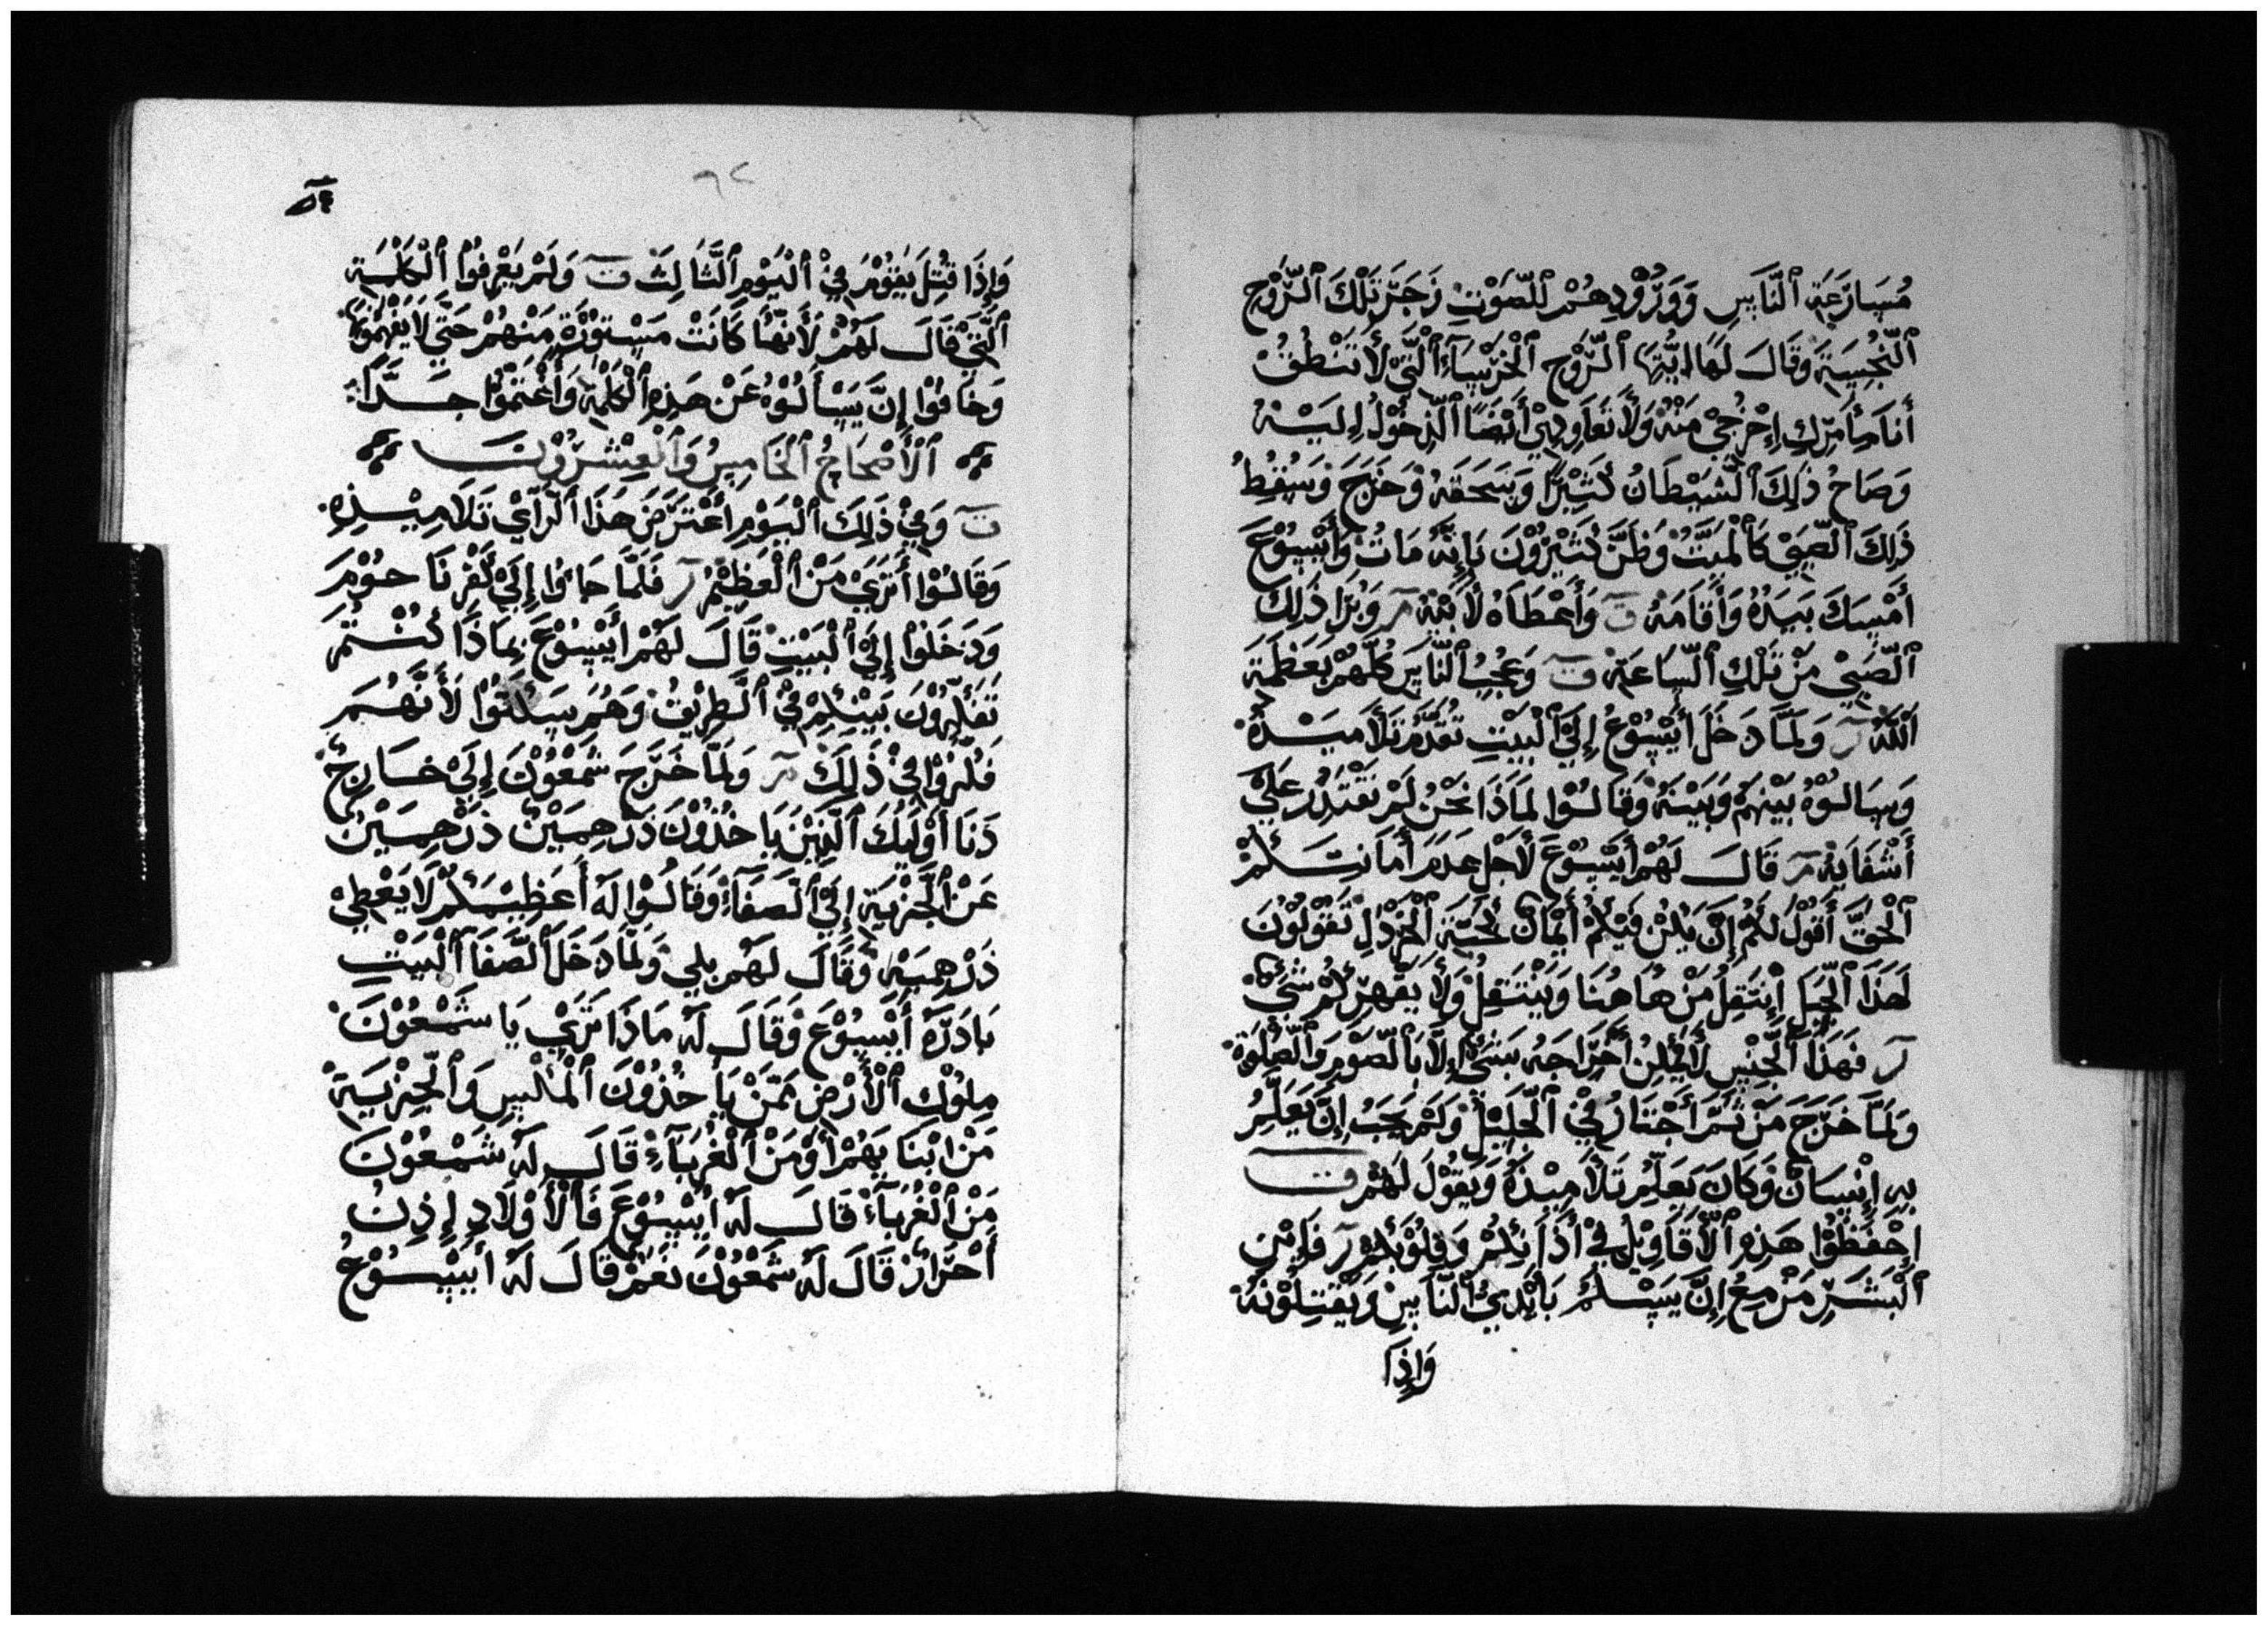 مُسَارَعَةِ ٱلنَّاسِ وَوُرُوْدِهِمْ لِلصَّوْتِ زَجَرَ تِلْكَ ٱلرُّوْحِ
ٱلنَّجِسَةِ وَقَالَ لَهَا ايَّتِهَا ٱلرُّوْح ٱلْخَرْسَآءِ ٱلَّتِيْ لَا تَنْطُقُ
أَنَا مأَمرِّكِ إِخْرُجِيْ مِنْهُ وَلَا تُعَاوِدِيْ أَيْضًا ٱلدِّخُوْلُ إِلَيْهُ
وَصَاحُ ذَلِكَ ٱلشَّيْطَانُ كَثِيْرًا وَسَحَقَهُ وَخَرَجَ وَسُقُطُ
ذَلِكَ ٱلصَّبِيْ كَالْمَيِّتْ وَظَنَّ كَثِيْرُوْنَ بَإِنَّهُ مَاتْ وَأَيْسُوْعَ
أَمْسِكَ بَيَدُهُ وَأَقَامَهُ ت وَأَعْطَاهُ لَأَبِيْهِ ر وَبُرَا ذَلِكَ
ٱلصَّبِيْ مِنْ تِلْكِ ٱلسَّاعَةِ ت وَعَجِبُ ٱلنَّاسِ كُلَّهُمْ بَعَظَمَةِ
ٱللّٰهِ ر وَلَمَّا دَخَلَ أَيْسُوْعُ إِلَيَ ٱلْبَيْتِ تَقَدَّمُ تَلَامِيْذُهُ
وَسَالُوْهُ بَيْنَهُمْ وَبَيْنَهُ وَقَالُوْا لِمَاذَا نَحْنُ لَمْ نَقْتَدِرْ عَلَيْ
أَشْفَايِهْ ر قَالَ لَهُمْ أَيْسُوْعَ لَأَجْلِ عَدَمَ أَمَانِتَكُمْ
ٱلْحَقَّ أَقُوْلُ لَكُمْ إِنَّ يَكُنْ فَيْكُمْ أَيْمَانْ كَحَبَّةِ ٱلْخَرْدَلِ تَقُوْلُوْنَ
لَهَذَا ٱلْجَبَل إِنْتَقِلُ مِنْ هَاهُنَا وَيَنْتَقِلْ وَلَا يَقْهِرْكُمْ شَيْءٌ
ر فَهَذَا ٱلْجِنْسِ لَا يُمْكِنْ أَخْرَاجَهُ بَشَيْءْ إِلَّا بَالصَّوْمِ وَٱلصَّلَوَةْ
وَلَمَّا خَرَجَ مِنْ ثَمَّ أَجْتَازُ فِيْ ٱلْجَلِيْلْ وَلَمْ يُحِبُ إِنَّ يَعَلِمُ
بِهِ إِنْسَانْ وَكَانَ يَعَلِّمُ تَلَامِيْذُهُ وَيَقُوْلَ لَهُمْ ت
إِحْفَظُوْا هَذِهِ ٱلْأَقَاوِيْلِ فِيْ أَذَانِكُمْ وَقِلُوْبَكُمْ ر فَإِبْنِ
ٱلْبَشَرِ مَزْمِعُ إِنَّ يَسْلَمُ بَأَيْدِيْ ٱلنَّاسِ وَيَقْتِلُوْنَهُ
وَإِذَا
٦٢
وَإِذَا قُتِلَ يَقُوْمَ فِيْ ٱلْيَوْمِ ٱلثَّالِثْ ت وَلَمْ يَعْرِفُوْا ٱلْكَلِمَةِ
ٱلَّتِيْ قَالَ لَهُمْ لَأَنَّهَا كَانَتْ مَسْتُوْرَةٍ مِنْهُمْ حَتَّي لَا يَفْهَمُوْهَا
وَخَافُوْا إِنَّ يَسْأَلُوْهُ عَنْ هَذِهِ ٱلْكَلِمَةِ وَأَغْتَمُّوْا جِدًّا
ٱلْأَصْحَاحُ ٱلْخَامِسُ وَٱلْعِشْرُوْنَ
ت وَفِيْ ذَلِكَ ٱلْيَوْمِ أَعْتَرَضَ هَذَا ٱلرَّأْيْ تَلَامِيْذِهِ
وَقَالُوْا أَتُرَيْ مَنْ ٱلْعَظِيْمُ ر فَلَمَّا جَاؤا إِلَيْ كَفْرِنَاحُوْمَ
وَدَخَلُوْا إِلَيْ ٱلْبَيْتِ قَالَ لَهُمْ أَيْسُوْعَ بِمَاذَا كُنْتُمْ
تَفَكِّرُوْنَ بَيْنِكِمْ فِيْ ٱلطِرِيْقْ وَهُمْ سَكَتُوْا لَأَنَّهُمْ
فَكَّرُوْا فِيْ ذَلِكَ ر وَلَمَّا خَرَجَ شَمْعُوْنَ إِلَيْ خَارِجْ
دَنَا أَوْلَيِكَ ٱلَّذِيْنَ يَاخُذُوْنَ دَرْهِمَيْنْ دَرْهِمَيْنْ
عَنْ ٱلْجَزْيَةِ إِلَيْ ٱلصَّفَآءْ وَقَالُوْا لَهُ أَعَظِيْمَكُمْ لَا يَعْطِيْ
دَرْهِمَيْهْ وَقَالَ لَهُمْ بِلِي وَلَمَّا دَخَلَ ٱلصَّفَا ٱلْبَيْتِ
بَادَرَهُ أَيْسُوْعَ وَقَالَ لَهُ مَاذَا تَرَيْ يَا شَمْعُوْنَ
مِلُوْكِ ٱلْأَرْضِ مَمَّنْ يَأْخُذُوْنَ ٱلْمَكْسِ وَٱلْجِزْيَةْ
مَنْ ابْنَايَهُمْ أَوْ مَنْ ٱلْغُرَبَآءْ قَالَ لَهُ شَمْعُوْنَ
مَنْ ٱلْغُرَبَآءْ قَالَ لَهُ أَيْسُوْعَ فَٱلْأَوْلَادِ إِذِنْ
أَحْرَارْ قَالَ لَهُ شَمْعُوْنَ نَعَمْ قَالَ لَهُ أَيْسُوْعُ